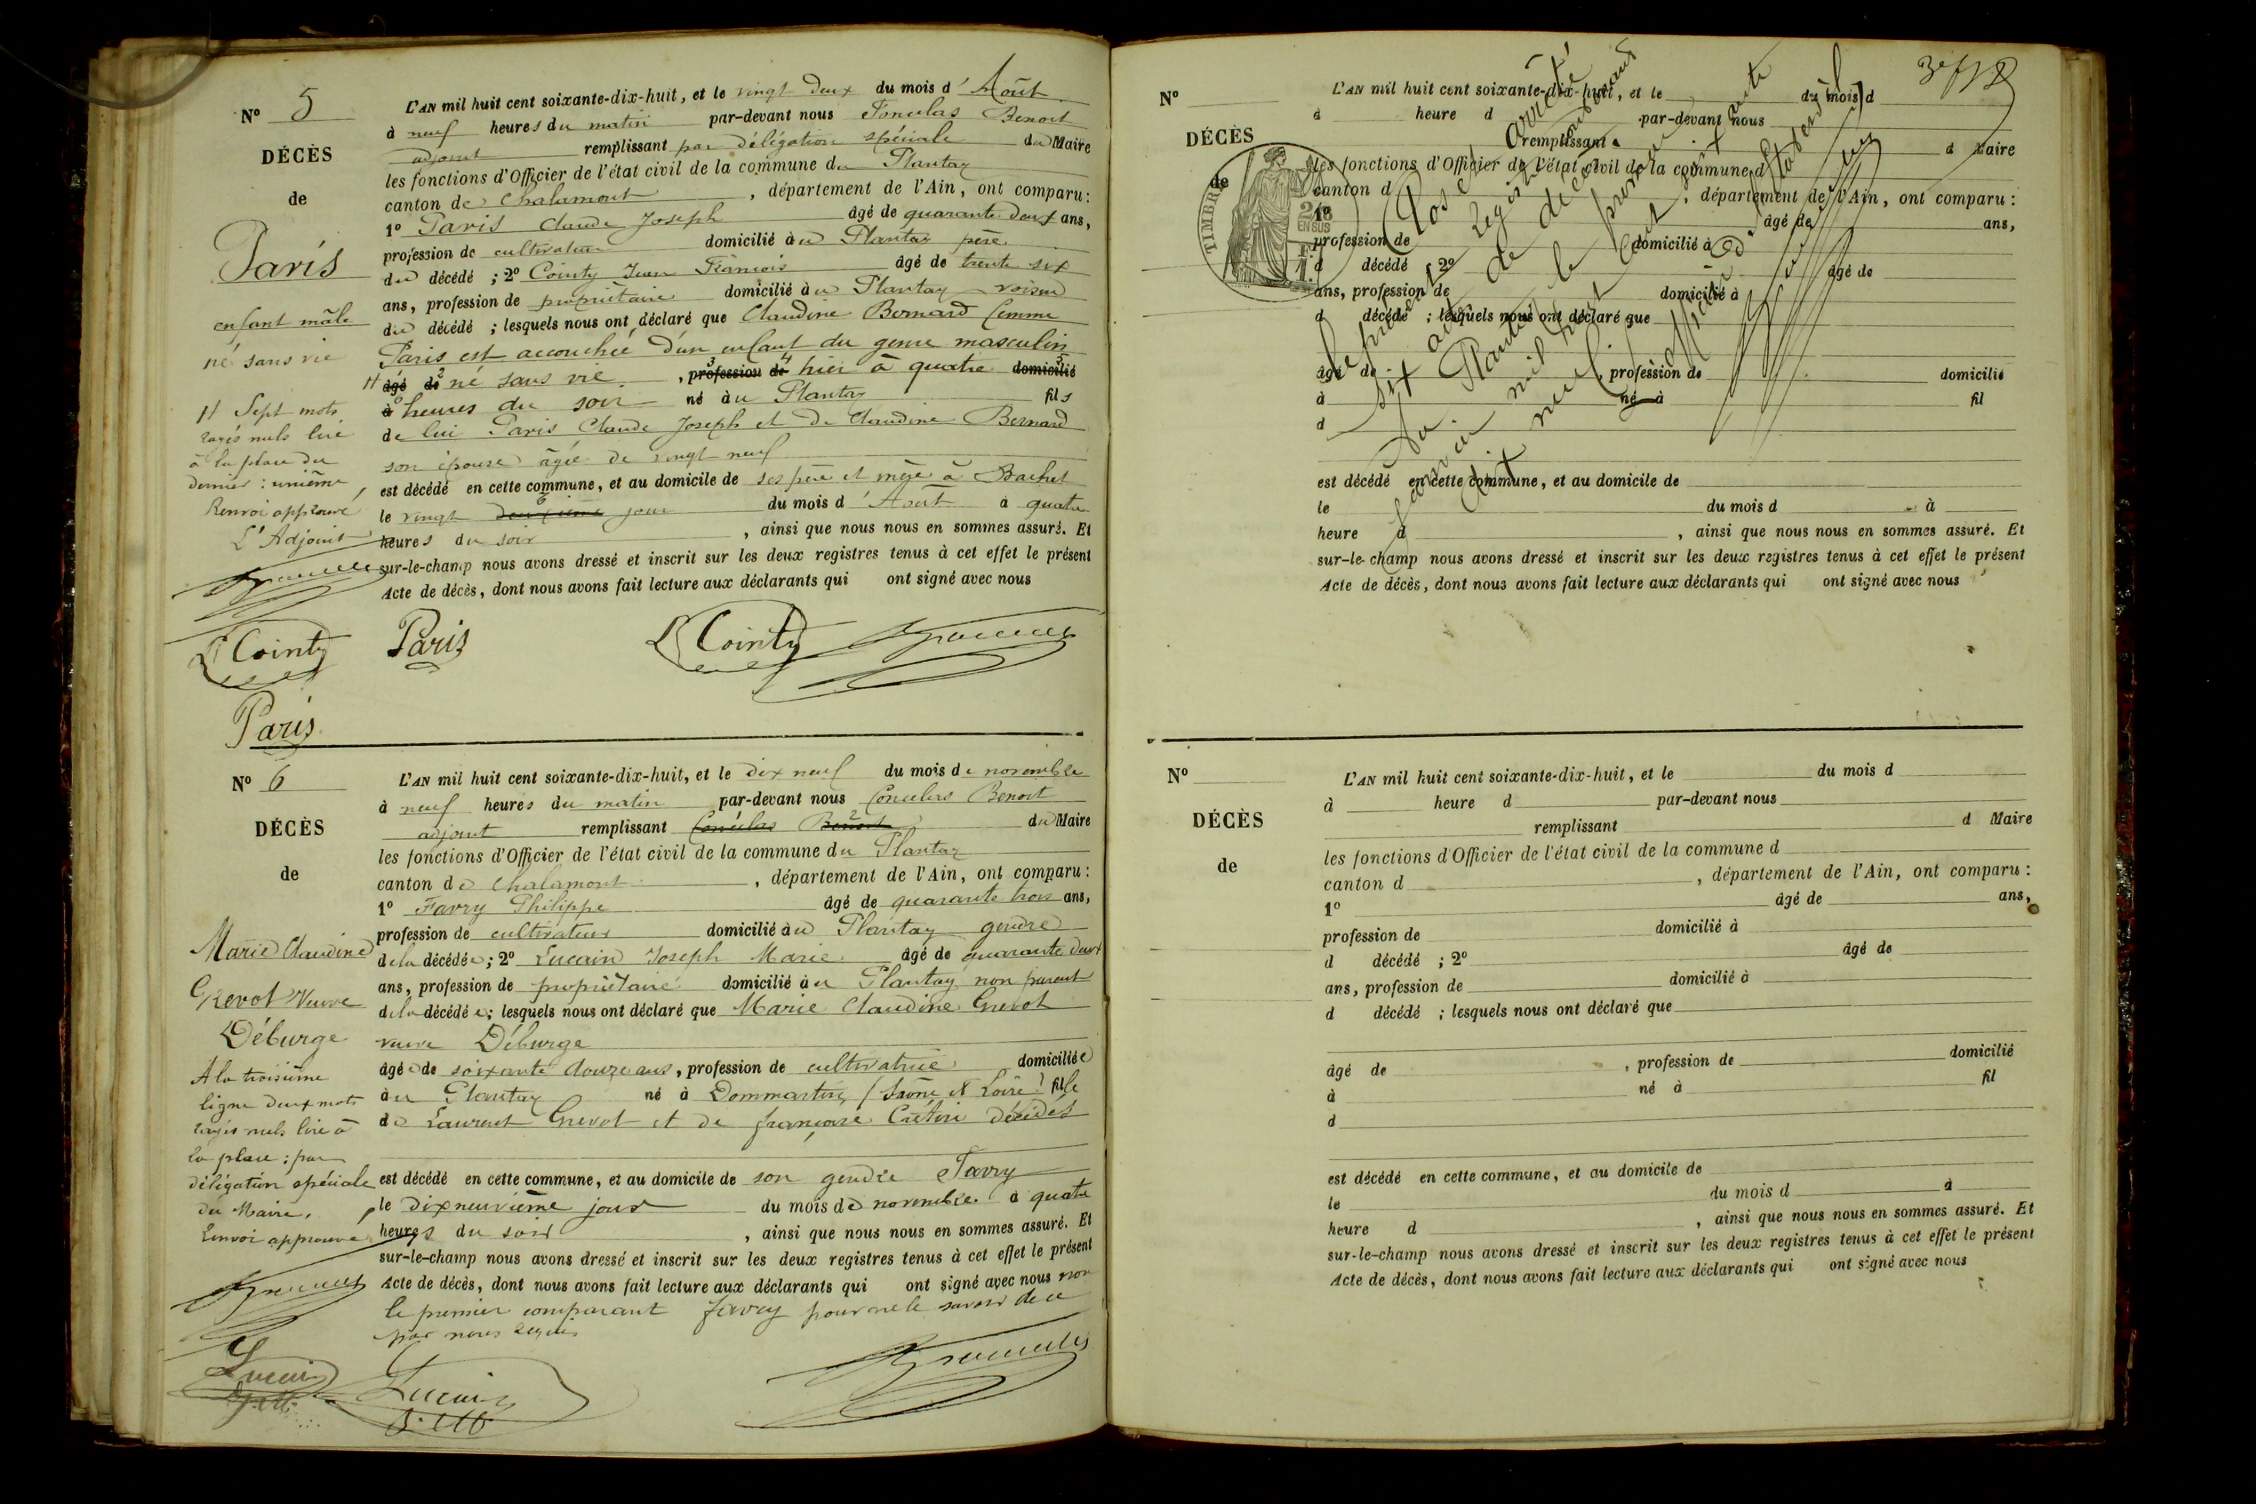 N° 5
DÉCÈS
de
Paris
enfant mâle
né sans vie
H Sept mots
rayés nuls lire
à la place du
dernier : unième
Renvoi approuvé
L'Adjoint
L'AN mil huit cent soixante-dix-huit, et le vingt deux du mois d'Août
à neuf heures du matin par-devant nous Benoit
adjoint remplissant par délégation spéciale du Maire
les fonctions d'Officier de l'état civil de la commune du Plantay
canton de Chalamont, département de l'Ain, ont comparu :
1° Paris Claude Joseph âgé de quarante deux ans,
profession de cultivateur domicilié au Plantay père
du décédé ; 2° Cointy Jean François âgé de trente six
ans, profession de propriétaire domicilié au Plantay voisin
du décédé ; lesquels nous ont déclaré que Claudine Bernard femme
Paris est accouchée d'un enfant du genre masculin
H âgé de né sans vie, profession de hier à quatre domicilié
à heures du soir né au Plantay fils
de lui Paris Claude Joseph et de Claudine Bernard
son épouse âgée de vingt neuf
est décédé en cette commune, et au domicile de ses père et mère à Bachet
le vingt deuxième jour du mois d'Août à quatre
heures du soir, ainsi que nous nous en sommes assuré. Et
sur-le-champ nous avons dressé et inscrit sur les deux registres tenus à cet effet le présent
Acte de décès, dont nous avons fait lecture aux déclarants qui ont signé avec nous
Cointy Paris Cointy
Paris
N° 6
DÉCÈS
de
Marie Claudine
Grevot Veuve
Déburge
A la troisième
ligne deux mots
rayés nuls lire à
la place : par
délégation spéciale
du Maire,
Renvoi approuvé
L'AN mil huit cent soixante-dix-huit, et le dix neuf du mois de novembre
à neuf heures du matin par-devant nous Benoit
adjoint remplissant Benoit du Maire
les fonctions d'Officier de l'état civil de la commune du Plantay
canton de Chalamont, département de l'Ain, ont comparu :
1° Favry Philippe âgé de quarante trois ans,
profession de cultivateur domicilié au Plantay gendre
de la décédée ; 2° Lucain Joseph Marie âgé de quarante deux
ans, profession de propriétaire domicilié au Plantay non parent
de la décédée ; lesquels nous ont déclaré que Marie Claudine Grevot
veuve Déburge
âgée de soixante douze ans, profession de cultivatrice domiciliée
au Plantay né à Dommartin (Saône et Loire) fille
de Laurent Grevot et de françoise décédés
est décédé en cette commune, et au domicile de son gendre Favry
le dixneuvième jour du mois de novembre à quatre
heures du soir, ainsi que nous nous en sommes assuré. Et
sur-le-champ nous avons dressé et inscrit sur les deux registres tenus à cet effet le présent
Acte de décès, dont nous avons fait lecture aux déclarants qui ont signé avec nous non
le premier comparant favry pour ne le savoir de ce
par nous requis
Lucain
Lucain
N°
DÉCÈS
de
TIMBRE
2/10
EN SUS
L'AN mil huit cent soixante-dix-huit, et le du mois d
à heure d par-devant nous
remplissant d Maire
les fonctions d'Officier de l'état civil de la commune d
canton d, département de l'Ain, ont comparu :
1° âgé de ans,
profession de domicilié à
d décédé ; 2° âgé de
ans, profession de domicilié à
d décédé ; lesquels nous ont déclaré que
âgé de, profession de domicilié
à né à fil
d
est décédé en cette commune, et au domicile de
le du mois d à
heure d, ainsi que nous nous en sommes assuré. Et
sur-le-champ nous avons dressé et inscrit sur les deux registres tenus à cet effet le présent
Acte de décès, dont nous avons fait lecture aux déclarants qui ont signé avec nous
Clos et arrêté
le présent registre
six actes de décès
Au Plantay le premier
janvier mil huit cent soixante
dix neuf
N°
DÉCÈS
de
L'AN mil huit cent soixante-dix-huit, et le du mois d
à heure d par-devant nous
remplissant d Maire
les fonctions d'Officier de l'état civil de la commune d
canton d, département de l'Ain, ont comparu :
1° âgé de ans,
profession de domicilié à
d décédé ; 2° âgé de
ans, profession de domicilié à
d décédé ; lesquels nous ont déclaré que
âgé de, profession de domicilié
à né à fil
d
est décédé en cette commune, et au domicile de
le du mois d à
heure d, ainsi que nous nous en sommes assuré. Et
sur-le-champ nous avons dressé et inscrit sur les deux registres tenus à cet effet le présent
Acte de décès, dont nous avons fait lecture aux déclarants qui ont signé avec nous